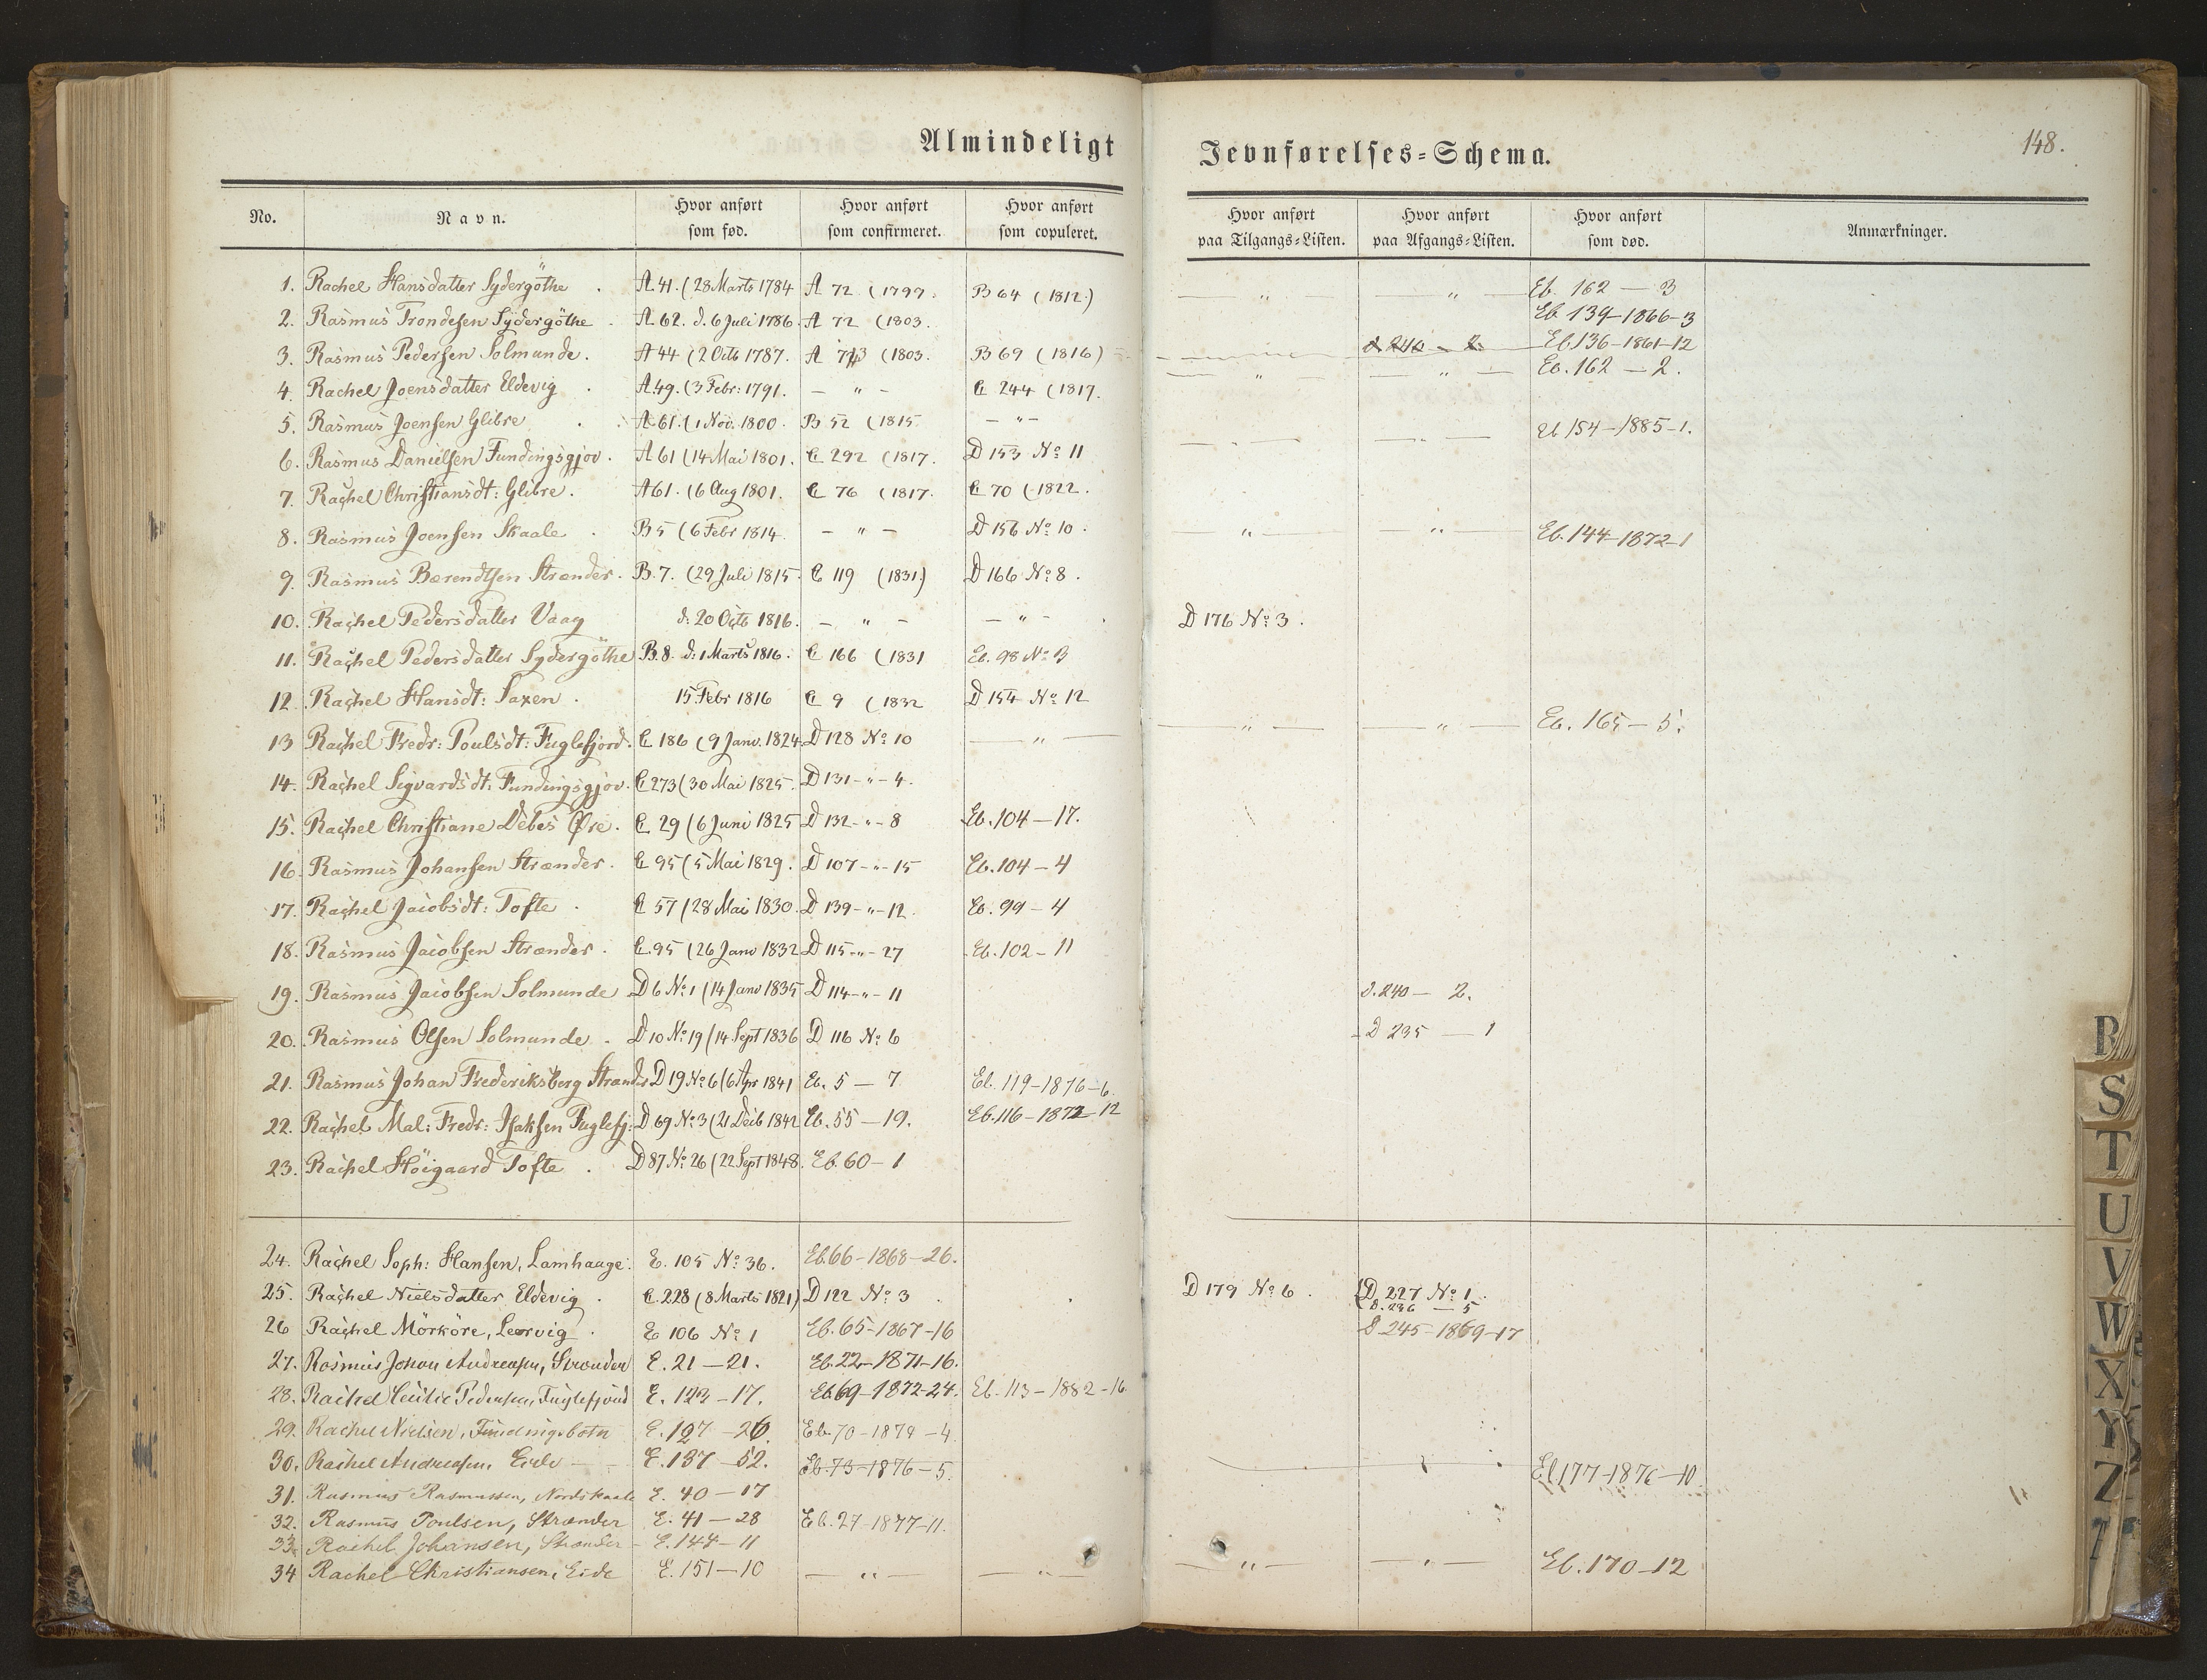 Almindeligt Jevnførelses=Schema.
148.
No. Navn. Hvor anført som fød. Hvor anført som confirmeret. Hvor anført som copuleret. Hvor anført paa Tilgangs=Listen. Hvor anført paa Afgangs=Listen. Hvor anført som død. Anmærkninger.
1. Rachel Hansdatter Sydergöthe . A.41. (28 Marts 1784 A 72 (1799. B 64 (1812.) — " — — " — Eb. 162 — 3
2. Rasmus Trondesen Sydergöthe . A.62. d. 6 Juli 1786. A 72 (1803. Eb 139-1866-3
3. Rasmus Pedersen Solmunde. A 44 (2 Octb 1787. A 73 (1803. B 69 (1816) d. 240 - 2. Eb 136-1861-12
4. Rachel Joensdatter Eldevig . A.49. (3 Febr: 1791. — " — C 244 (1817. — " — — " — Eb. 162 — 2.
5. Rasmus Joensen Glibre . A 61. (1 Nov. 1800. B 52 (1815 — " — — " — — " — Eb 154-1885-1.
6. Rasmus Danielsen Fundingsgjov. A 61 (14 Mai 1801. C 292 (1817. D 153 No: 11
7. Rachel Christiansdt: Glibre. A 61. (6 Aug 1801. C 76 (1817. C 70 (1822.
8. Rasmus Joensen Skaale . B 5 (6 Febr 1814. — " — D 156 No: 10. — " — — " — Eb. 144-1872-1
9. Rasmus Barendtsen Strænder. B. 7. (29 Juli 1815. C 119 (1831.) D 166 No: 8.
10. Rachel Pedersdatter Vaag d: 20 Octb 1816. — " — — " — D 176 No: 3.
11. Rachel Pedersdatter Sydergöthe B.8. d: 1 Marts 1816. C 166 (1831 Eb. 98 No: 3
12. Rachel Hansdt: Saxen . 15 Febr 1816 C 9 (1832 D 154 No: 12
13 Rachel Fredr: Poulsdt: Fuglefjord. C 186 (9 Janv. 1824. D 128 No: 10 — " — — " — — " — Eb. 165 — 5.
14. Rachel Sigvardsdt: Fundingsgjov. C 273 (30 Mai 1825. D 131 - " - 4.
15. Rachel Christiane Debes Øre. C 29 (6 Juni 1825 D 132 - " - 8 Eb. 104 — 17.
16. Rasmus Johansen Strænder. C 95 (5 Mai 1829. D 107 - " - 15 Eb. 104 — 4
17. Rachel Jacobsdt: Tofte . C 57 (28 Mai 1830. D 139 - " - 12. Eb. 99 — 4
18. Rasmus Jacobsen Strænder . C. 95 (26 Janv 1832 D 115 - " - 27 Eb. 102 - 11
19. Rasmus Jacobsen Solmunde D 6 No: 1 (14 Janv 1835 D 114 - " - 11 d. 240 — 2.
20. Rasmus Olsen Solmunde . D 10 No: 19 (14 Sept 1836 D 116 No: 6 D 235 — 1
21. Rasmus Johan Frederiksberg Strænder D 19 No: 6 (6 Apr 1841 Eb. 5 — 7 Eb. 119-1876-6.
22. Rachel Mal: Fredr: Isaksen Fuglefj: D 69 No: 3 (21 Decb 1842 Eb. 55 — 19. Eb. 116-1872-12
23. Rachel Höigaard Tofte . D 87 No: 26 (22 Sept 1848. Eb. 60 - 1
24. Rachel Soph: Hansen, Lamhauge. E. 105 No: 36. Eb. 66-1868-26.
25. Rachel Nielsdatter Eldevig . C. 228 (8 Marts 1821) D 122 No: 3 D 179 No: 6 . D 227 No: 1.
D. 236 — 5
26 Rachel Mörköre, Leervig . E 106 No: 1 Eb. 65-1867-16 D 245-1869-17
27. Rasmus Johan Andreasen, Strænder E. 21 — 21. Eb. 22-1871-16.
28. Rachel Cecilie Pedersen, Fuglefjord E. 123 — 17. Eb 69-1872-24. Eb. 113-1882-16
29. Rachel Nielsen, Fundingsbotn E. 127 — 26. Eb 70-1874-4.
30. Rachel Andreasen, Eide E. 137 — 52. Eb. 73-1876-5. Eb. 177-1876-10
31. Rasmus Rasmussen, Nordskaale E. 40 — 17
32. Rasmus Poulsen, Strænder E. 41 — 28 Eb. 27-1877-11.
33. Rachel Johansen, Strænder E. 144 — 11
34 Rachel Christiansen, Eide E. 151 — 10 — " — — " — — " — — " — Eb. 170-12
R
S
T
U
V
W
X
Y
Z